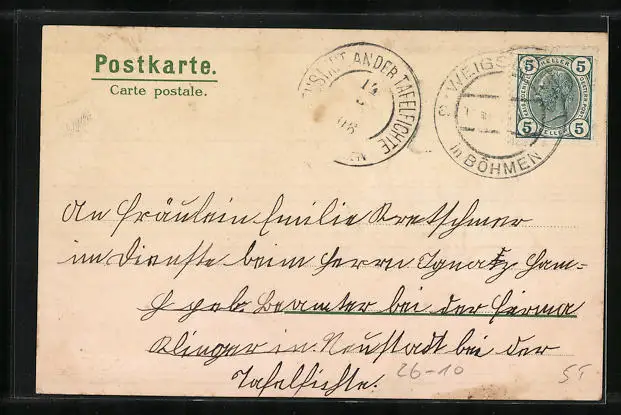 Postkarte.
Carte postale.
NEUSTADT AN DER TAFELFICHTE
14
08
5 HELLER 5
5 HELLER 5
in BÖHMEN
An Fräulein Emilie Kretschmer
im Dienste beim Herrn Ignatz Ham=
geb. Beamter bei der Firma
Klinger in Neustadt bei der
Tafelfichte.
26-10